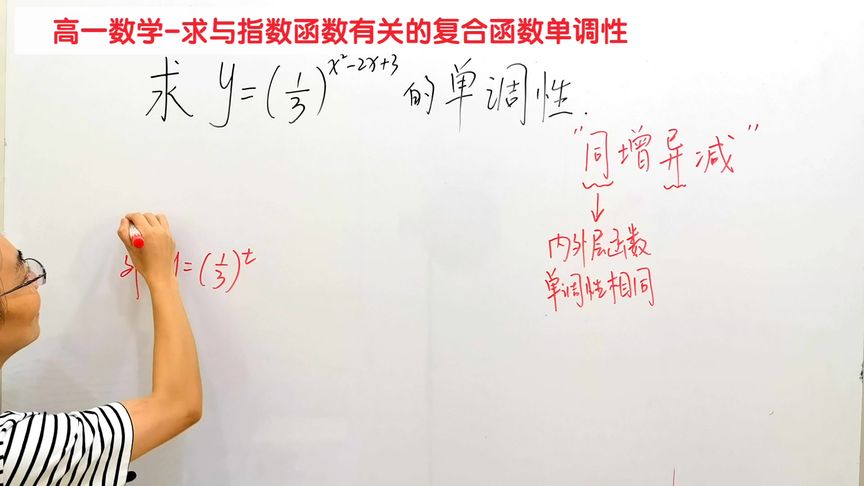 高一数学-求与指数函数有关的复合函数单调性
求 y=(1/3)^(x²-2x+3) 的单调性.
"同增异减"
↓
内外层函数
单调性相同
y=(1/3)^t